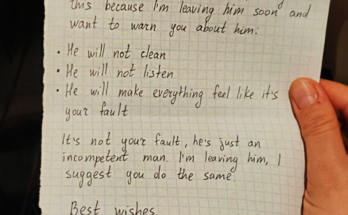 this because I'm leaving him soon and
want to warn you about him:
• He will not clean
• He will not listen
• He will make everything feel like it's
your fault
It's not your fault, he's just an
incompetent man. I'm leaving him, I
suggest you do the same.
Best wishes